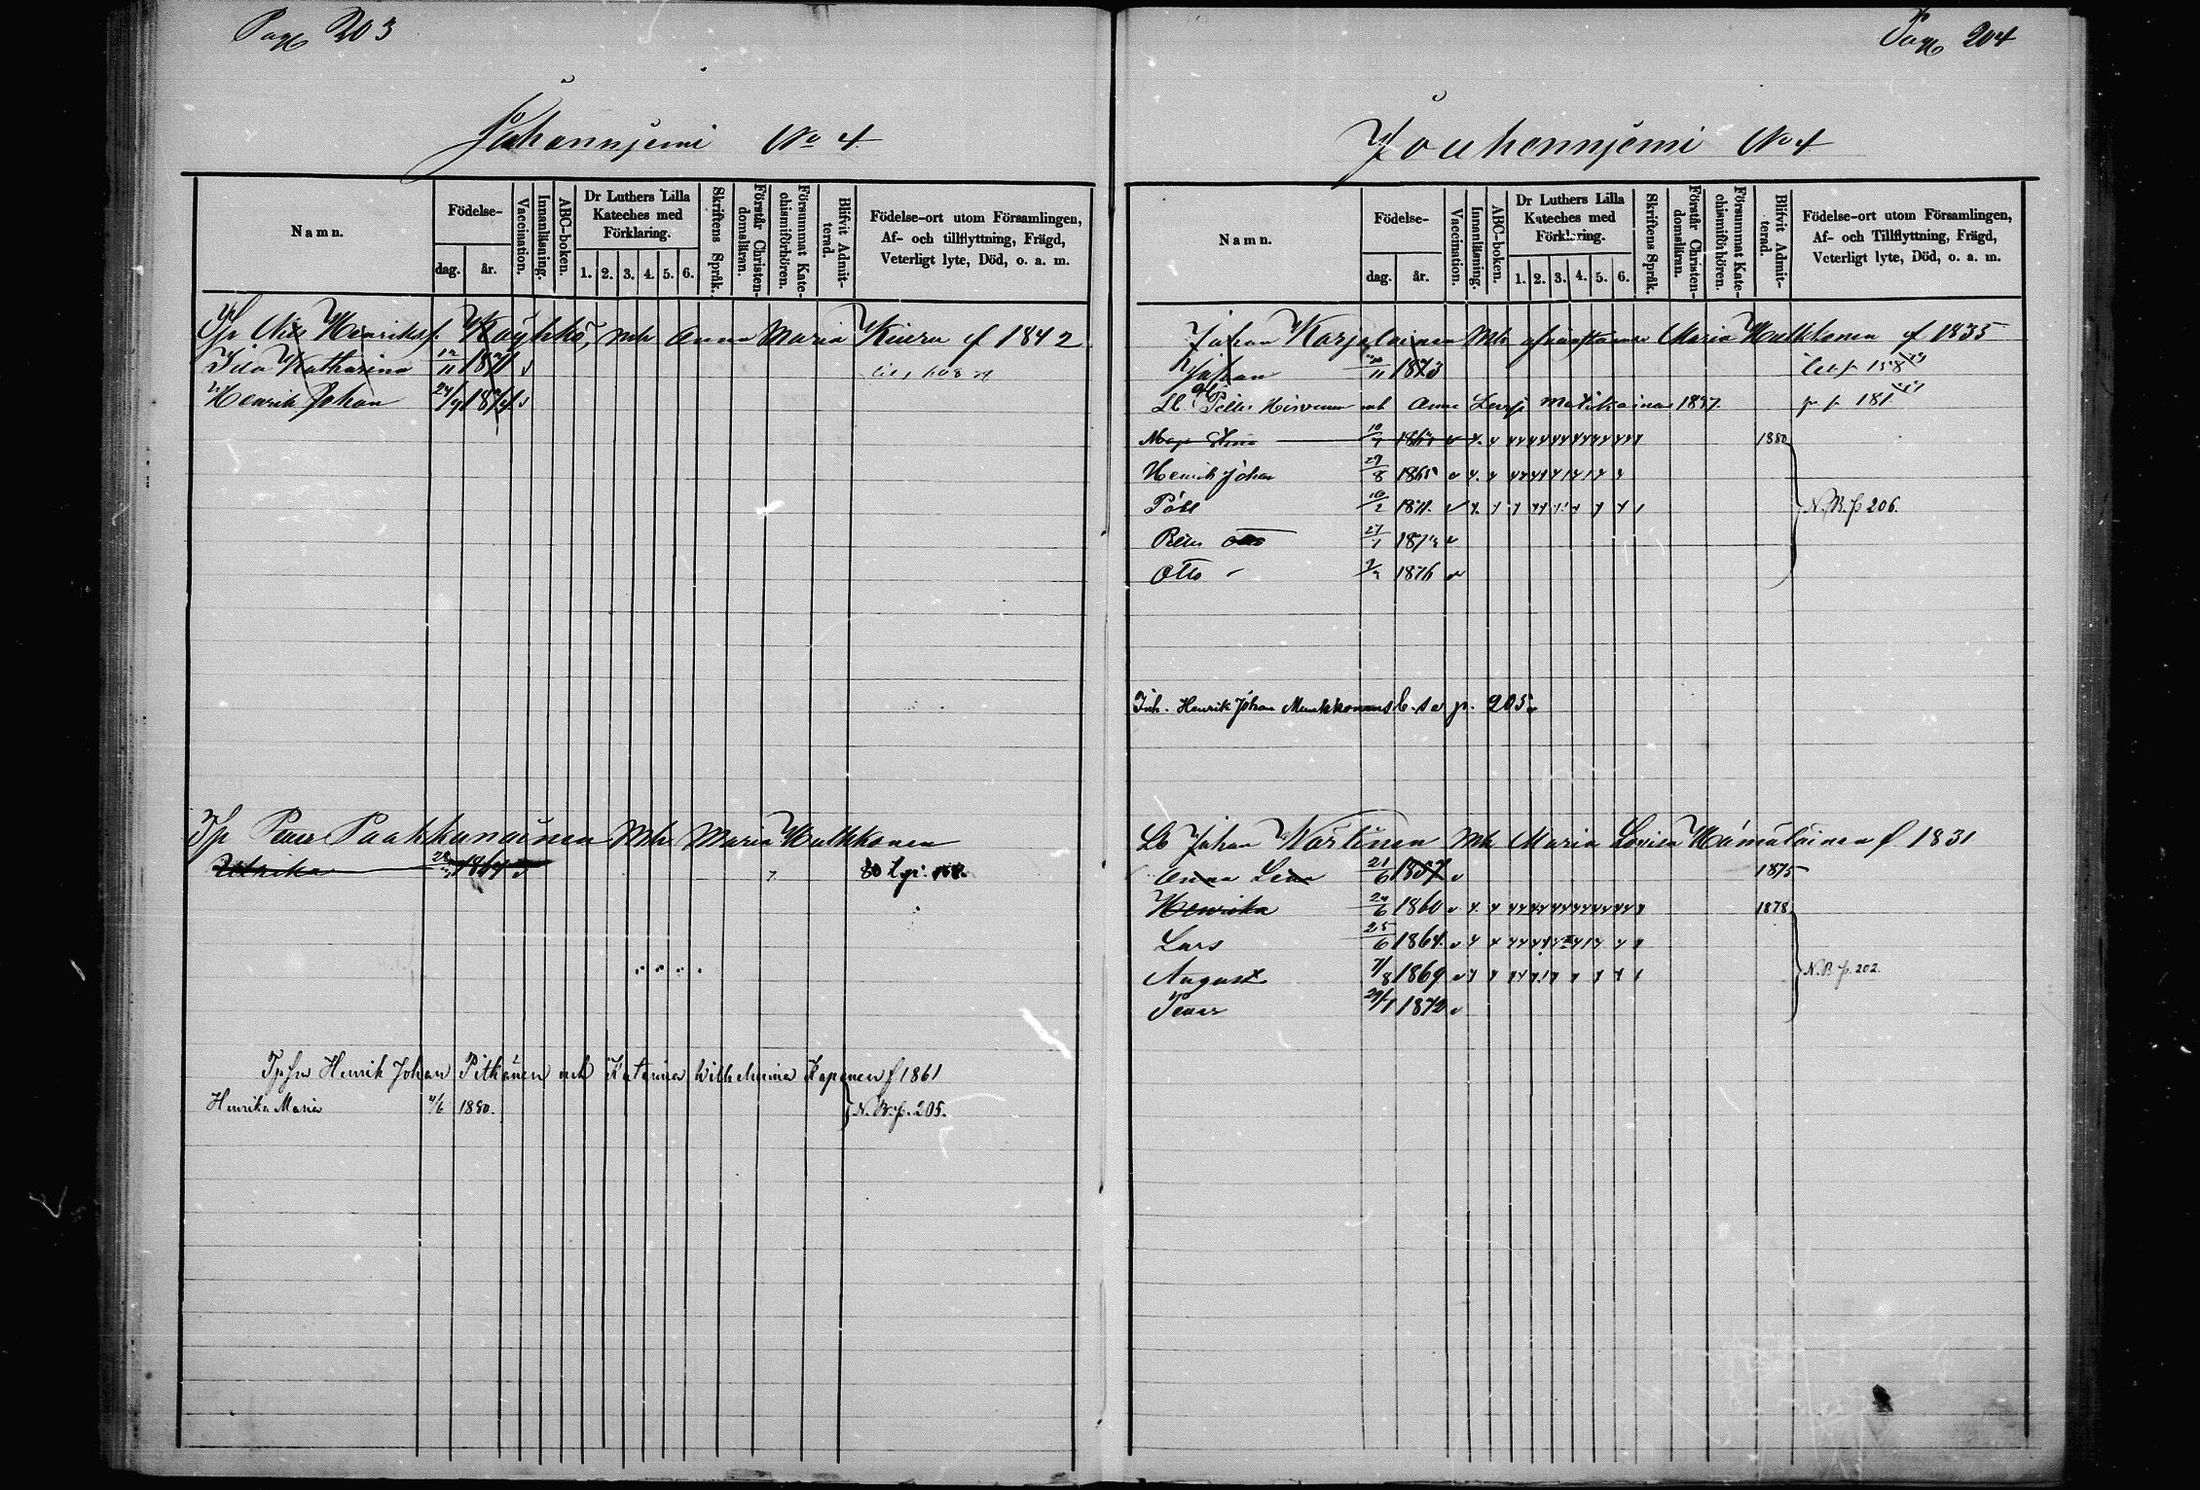 Pag 203
Johannjemi No 4
Namn.
Födelse-
dag.
år.
Vaccination.
Innanläsning.
ABC-boken.
Dr Luthers Lilla
Kateches med
Förklaring.
1. 2. 3. 4. 5. 6.
Skriftens Språk.
Förstår Christen-
domsläran.
Försummat Kate-
chismiförhören.
Blifvit Admit-
terad.
Födelse-ort utom Församlingen,
Af- och tillflyttning, Frägd,
Veterligt lyte, Död, o. a. m.
Henriks. Käyhkö, mh Anna Maria Kiuru f 1842
Ida Katharina 12/11 1871
Henrik Johan 24/9 1874
Tp Petter Paakkunainen Mh Maria Hulkkonen
Ulrika 1864
Henrik Johan Pitkänen mh Katarina Wilhelmina Kaponen f 1861
Henrika Maria 4/6 1880. N.B. p. 205.
Pag 204
Jouhennjemi No 4
Namn.
Födelse-
dag.
år.
Vaccination.
Innanläsning.
ABC-boken.
Dr Luthers Lilla
Kateches med
Förklaring.
1. 2. 3. 4. 5. 6.
Skriftens Språk.
Förstår Christen-
domsläran.
Försummat Kate-
chismiförhören.
Blifvit Admit-
terad.
Födelse-ort utom Församlingen,
Af- och Tillflyttning, Frägd,
Veterligt lyte, Död, o. a. m.
Johan Karjalainen Mh Maria Hulkkonen f 1835
Johan 1873
Lb Petter Hirvonen mh Anna Matikainen 1837 p. 181
Maja Stina 10/7 1880
Henrik Johan 29/8 1865
Påhl 10/2 1871. N.B. p 206.
Petter 27/1
Otto 1876
Inh. Henrik Johan Munkkonens b. se p. 205.
Lb Johan Wartinen Mh Maria Lovisa Hämäläinen f 1831
Anna Lena 21/6 1857 1875
Henrika 24/6 1860 1878
Lars 25/6 1864.
August 7/8 1869 N.B p. 202.
Petter 29/1 1872